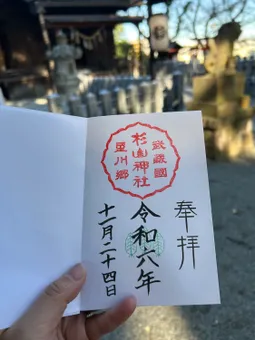 奉拝
武蔵國
杉山神社
星川郷
令和六年
十一月二十四日